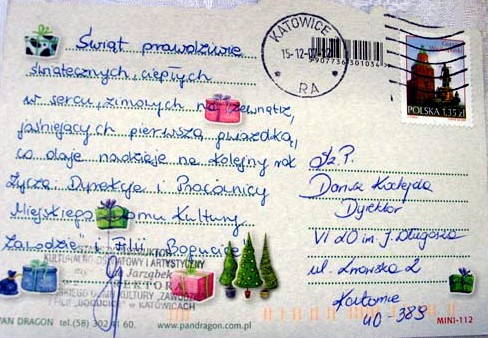 Świąt prawdziwie
świątecznych, ciepłych
w sercu, zimowych na zewnątrz,
jaśniejących pierwszą gwiazdką,
co daje nadzieję na kolejny rok
Życzą Dyrekcja i Pracownicy
Miejskiego Domu Kultury
i Filii Bogucice
KULTURALNO OŚWIATOWY I ARTYSTYCZNY
Jarząbek
KULTURY "ZAWODZIE"
FILII "BOGUCICE" W KATOWICACH
PAN DRAGON tel.(58) 302 41 60. www.pandragon.com.pl
KATOWICE
15-12-0
RA
5907736301034
POLSKA 1,35 zł
Sz. P.
Dyrektor
VI LO im. J. Długosza
ul. 2
Katowice
40-389
MINI-112